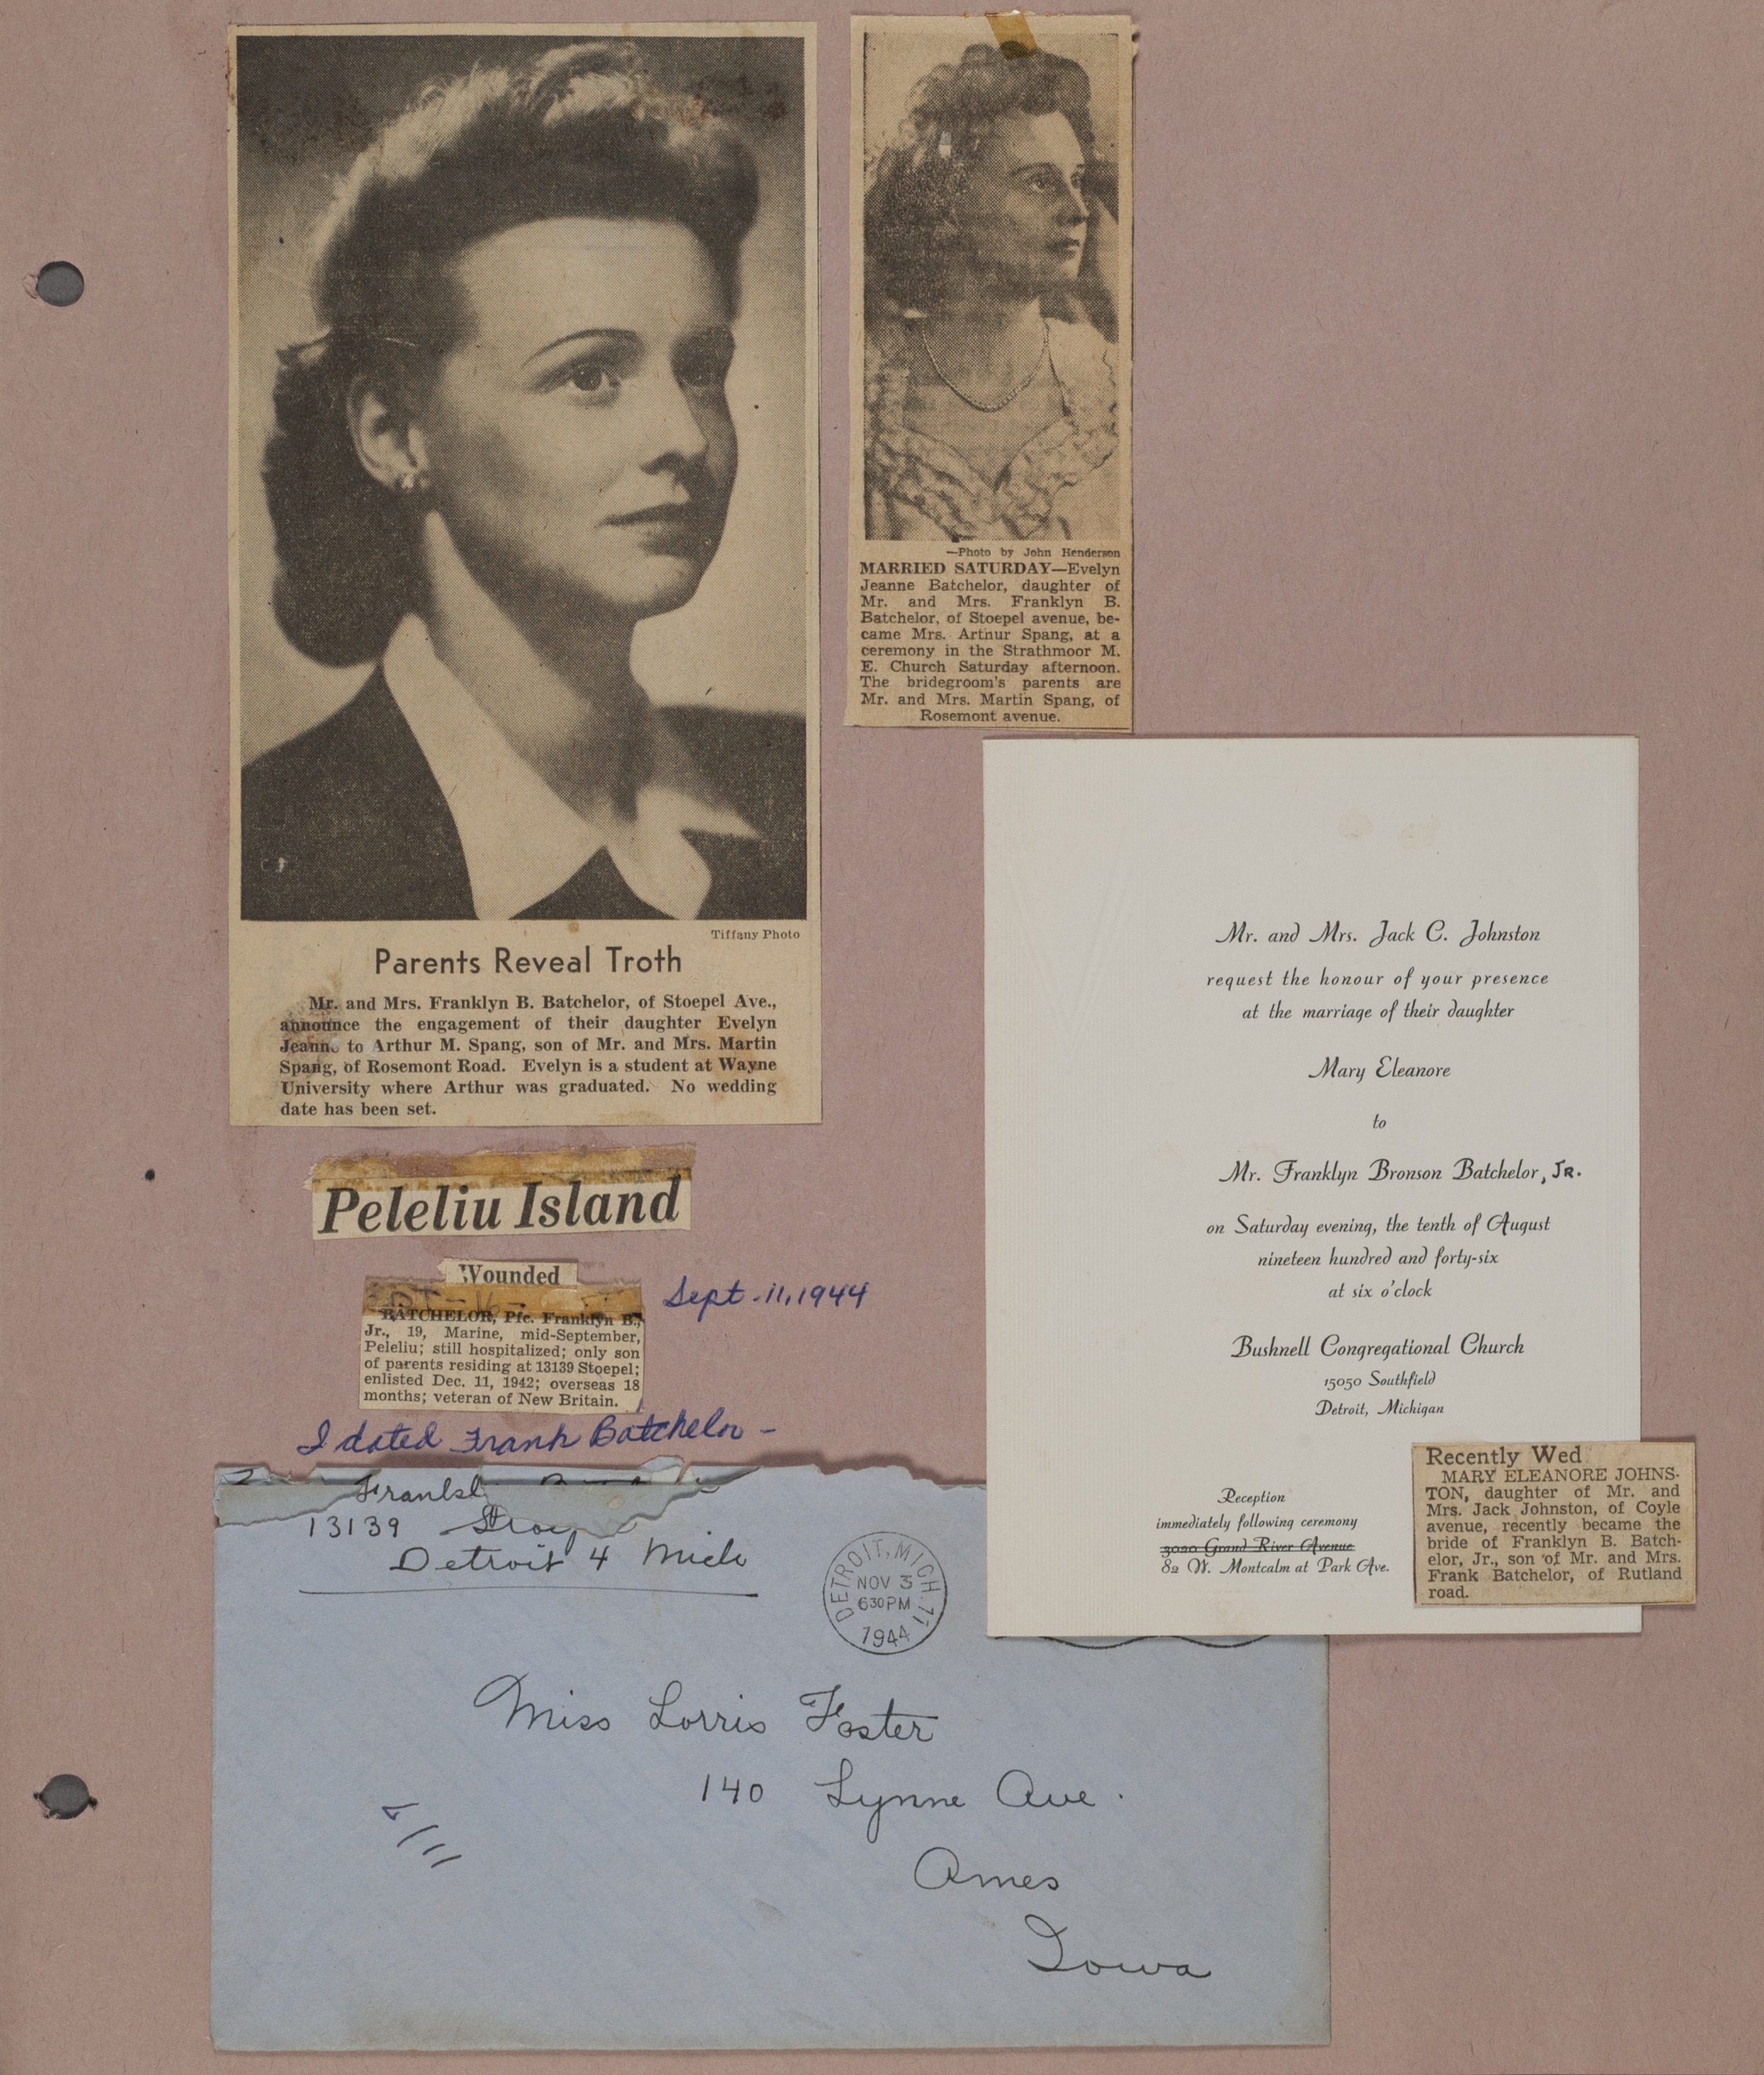 Tiffany Photo
Parents Reveal Troth
Mr. and Mrs. Franklyn B. Batchelor, of Stoepel Ave.,
announce the engagement of their daughter Evelyn
Jeanne to Arthur M. Spang, son of Mr. and Mrs. Martin
Spang, of Rosemont Road. Evelyn is a student at Wayne
University where Arthur was graduated. No wedding
date has been set.
—Photo by John Henderson
MARRIED SATURDAY—Evelyn
Jeanne Batchelor, daughter of
Mr. and Mrs. Franklyn B.
Batchelor, of Stoepel avenue, be-
came Mrs. Arthur Spang, at a
ceremony in the Strathmoor M.
E. Church Saturday afternoon.
The bridegroom's parents are
Mr. and Mrs. Martin Spang, of
Rosemont avenue.
Peleliu Island
Wounded
Sept. 11, 1944
BATCHELOR, Pfc. Franklyn B.,
Jr., 19, Marine, mid-September,
Peleliu; still hospitalized; only son
of parents residing at 13139 Stoepel;
enlisted Dec. 11, 1942; overseas 18
months; veteran of New Britain.
I dated Frank Batchelor -
Mr. and Mrs. Jack C. Johnston
request the honour of your presence
at the marriage of their daughter
Mary Eleanore
to
Mr. Franklyn Bronson Batchelor, JR.
on Saturday evening, the tenth of August
nineteen hundred and forty-six
at six o'clock
Bushnell Congregational Church
15050 Southfield
Detroit, Michigan
Reception
immediately following ceremony
3020 Grand River Avenue
82 W. Montcalm at Park Ave.
Recently Wed
MARY ELEANORE JOHNS-
TON, daughter of Mr. and
Mrs. Jack Johnston, of Coyle
avenue, recently became the
bride of Franklyn B. Batch-
elor, Jr., son of Mr. and Mrs.
Frank Batchelor, of Rutland
road.
13139
Detroit 4 Mich
DETROIT, MICH. 11
NOV 3
630 PM
1944
Miss Lorris Foster
140 Lynne Ave.
Ames
Iowa